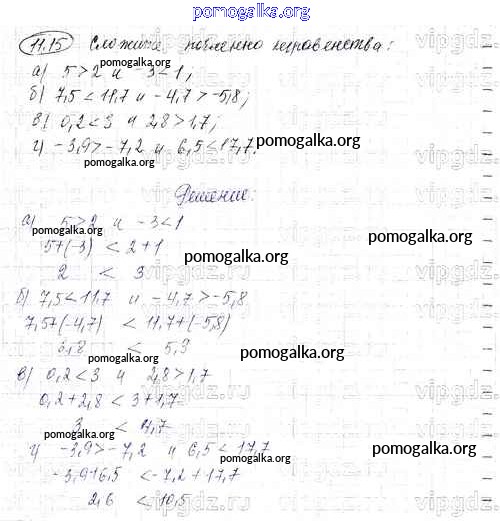 pomogalka.org
11.15 Сложите почленно неравенства:
а) 5>2 и -3<1;
pomogalka.org
б) 7,5<11,7 и -4,7>-5,8;
в) 0,2<3 и 2,8>1,7;
pomogalka.org
г) -3,9>-7,2 и 6,5<17,7.
pomogalka.org
vipgdz.ru
Решение:
а) 5>2 и -3<1
pomogalka.org
pomogalka.org
5+(-3) < 2+1
pomogalka.org
2 < 3
б) 7,5<11,7 и -4,7>-5,8
7,5+(-4,7) < 11,7+(-5,8)
3,8 < 5,3
pomogalka.org
pomogalka.org
в) 0,2<3 и 2,8>1,7
0,2+2,8 < 3+1,7
3 < 4,7
pomogalka.org
г) -3,9>-7,2 и 6,5<17,7
pomogalka.org
pomogalka.org
-3,9+6,5 < -7,2+17,7
2,6 < 10,5
pomogalka.org